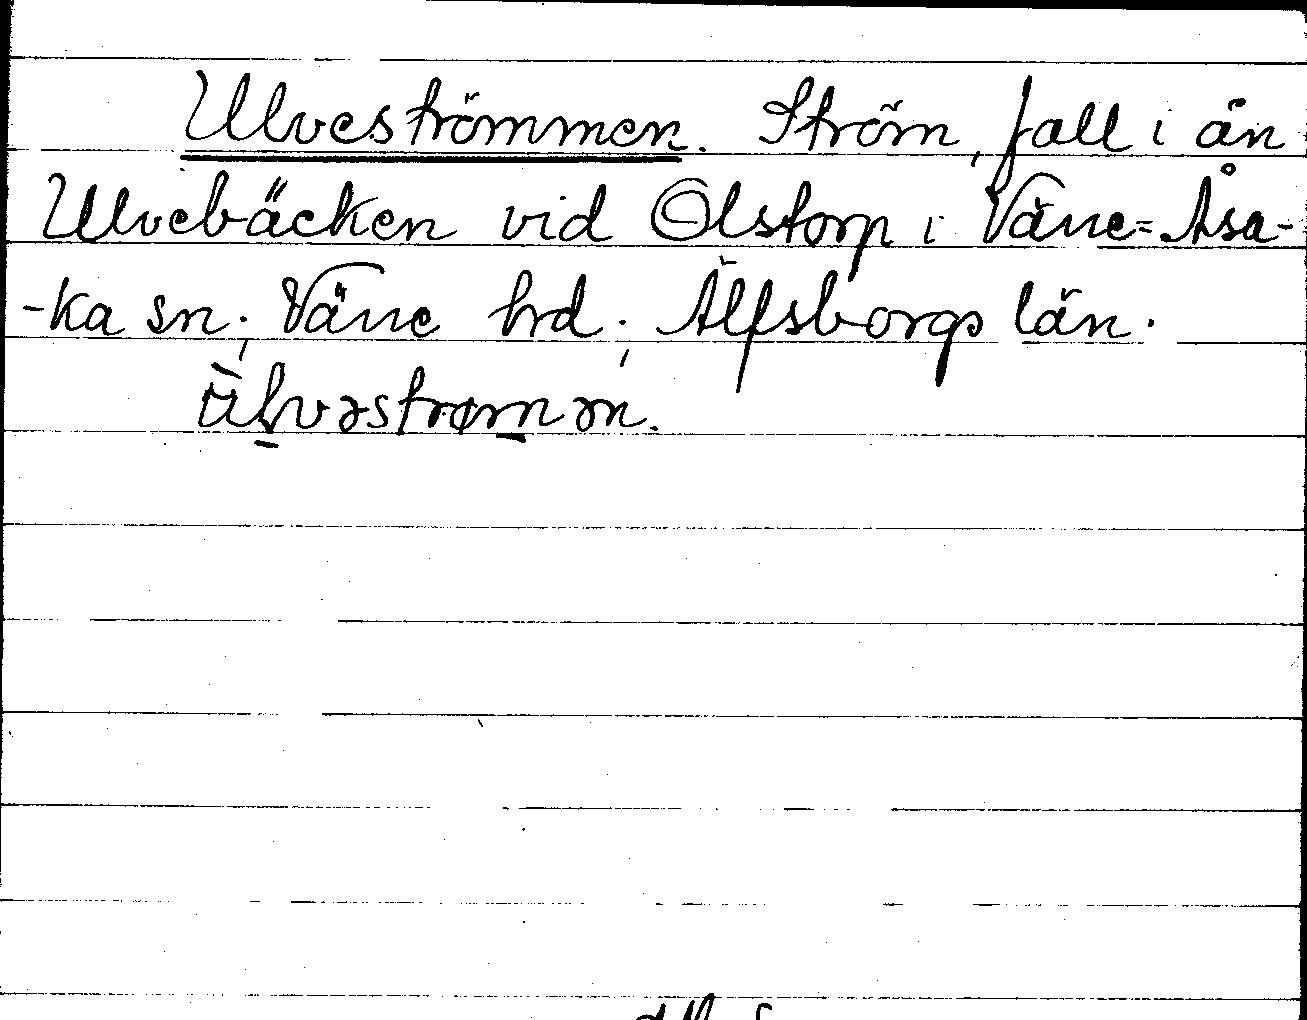 Ulveströmmen. Ström, fall i ån
Ulvebäcken vid Olstorp i Väne=Åsa-
-ka sn; Väne hrd; Älfsborgs län.
ülvəstrømən.